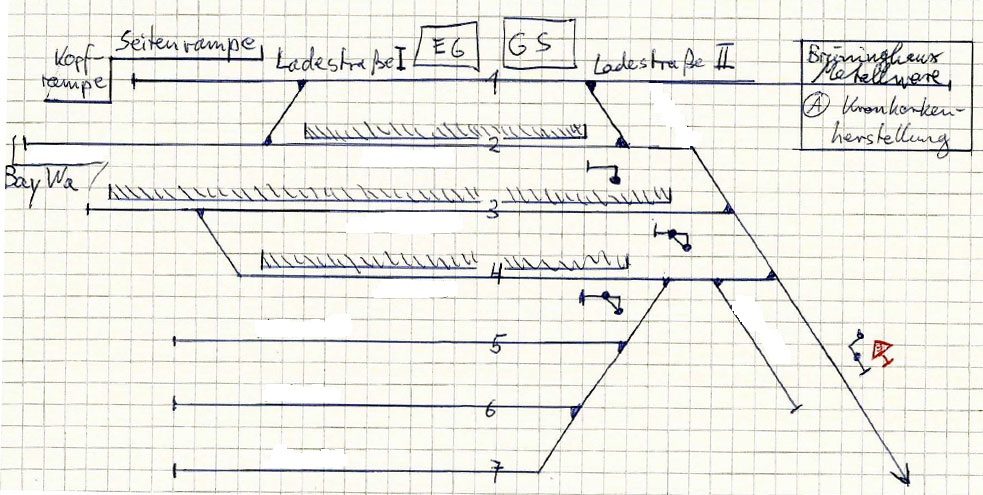 Kopf-
rampe
Seitenrampe
Ladestraße I
EG
GS
Ladestraße II
Brüninghaus
Metallware
Ⓐ Kronkorken-
herstellung
1
2
BayWa
3
4
5
6
7